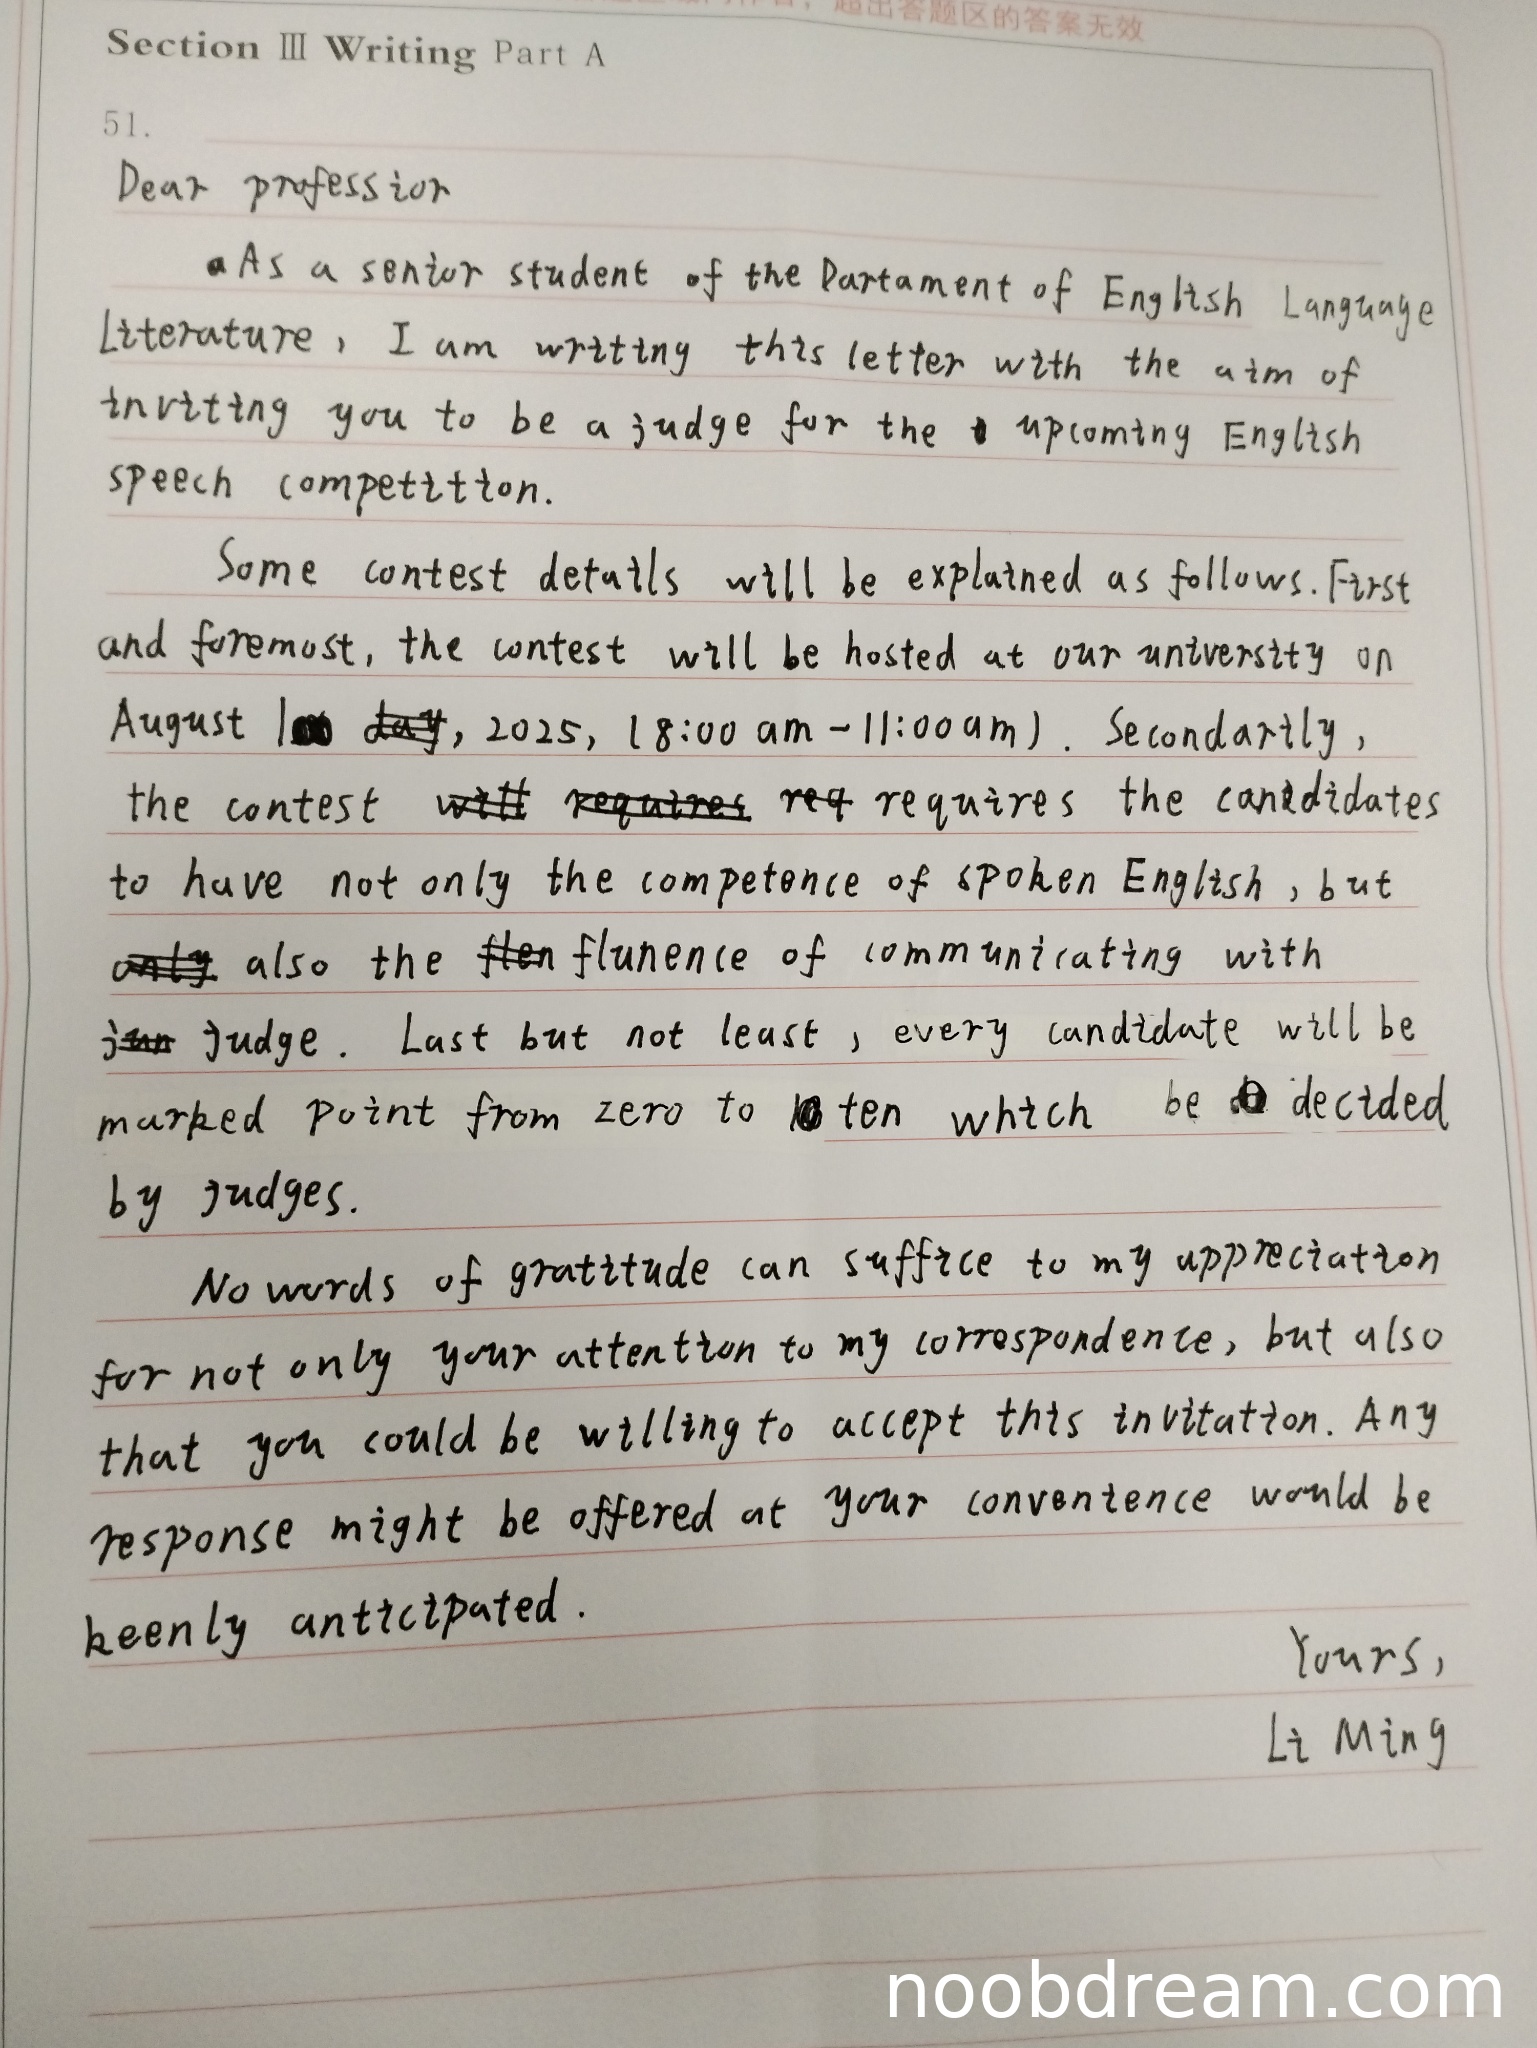 超出答题区的答案无效
Section Ⅲ Writing Part A
51.
Dear professior
As a senior student of the Dartament of English Language
Literature, I am writing this letter with the aim of
inviting you to be a judge for the upcoming English
speech competition.
Some contest details will be explained as follows. First
and foremost, the contest will be hosted at our university on
August 1 day, 2025, (8:00 am - 11:00 am). Secondarily,
the contest will requires req requires the candidates
to have not only the competence of spoken English, but
only also the flen flunence of communicating with
jun judge. Last but not least, every candidate will be
marked point from zero to ten which be decided
by judges.
No words of gratitude can suffice to my appreciation
for not only your attention to my correspondence, but also
that you could be willing to accept this invitation. Any
response might be offered at your convenience would be
keenly anticipated.
Yours,
Li Ming
noobdream.com